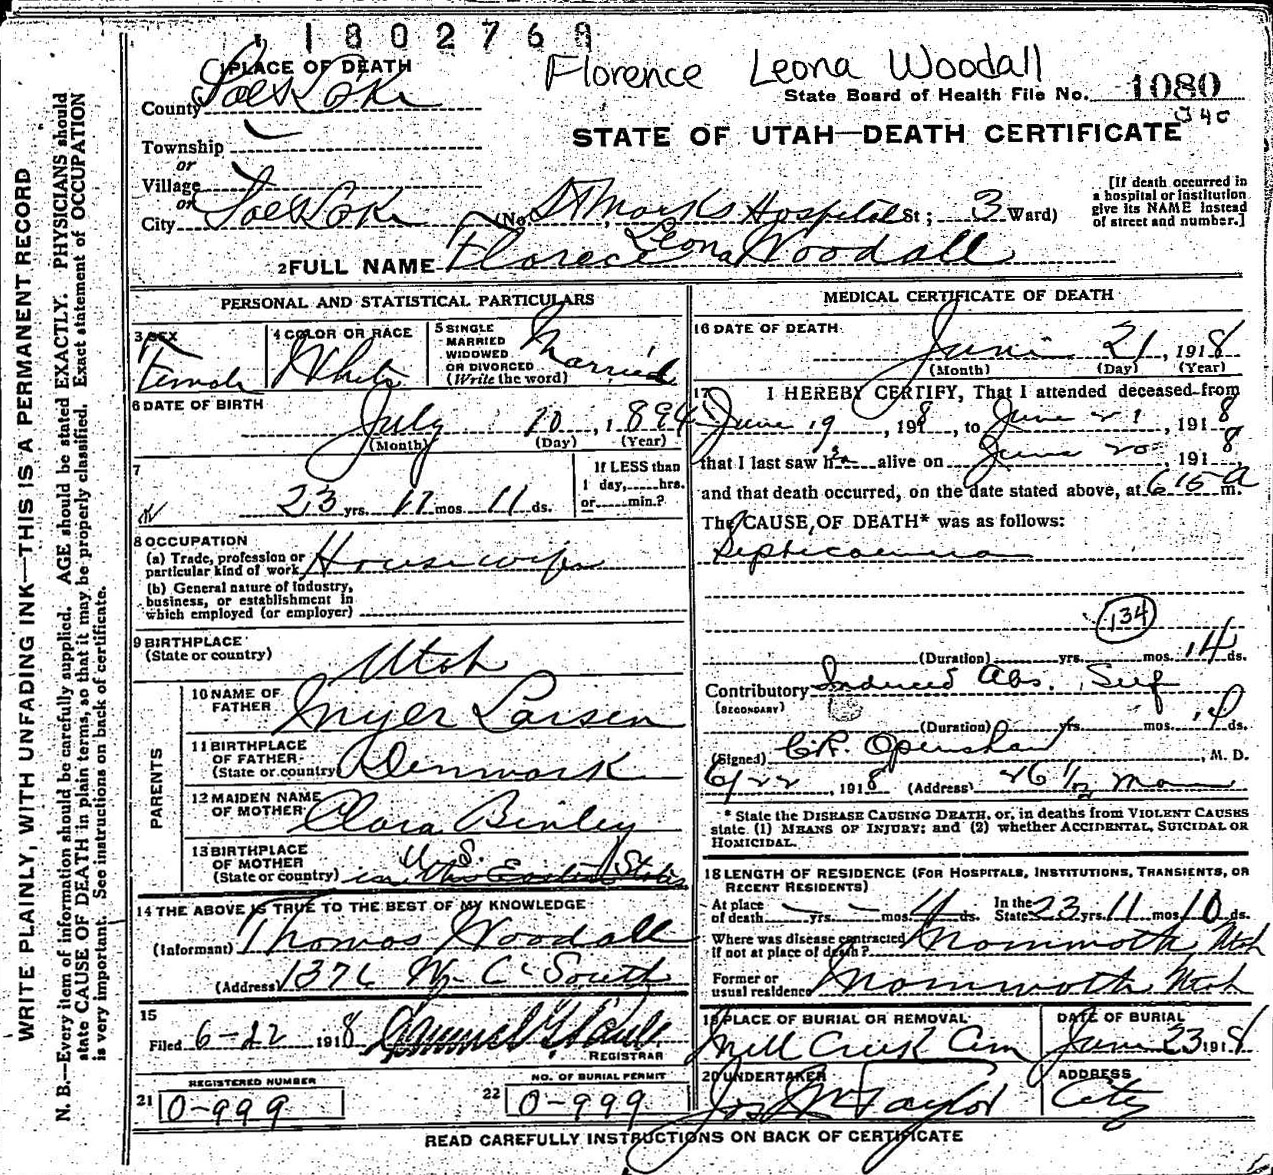 1802769
Florence Leona Woodall
PLACE OF DEATH
State Board of Health File No. 1080
County Salt Lake
STATE OF UTAH—DEATH CERTIFICATE
Township
or
Village
or
City Salt Lake (No. St Marks Hospital St; 3 Ward)
[If death occurred in a hospital or institution give its NAME instead of street and number.]
Leona
2 FULL NAME Florece Woodall
PERSONAL AND STATISTICAL PARTICULARS
3 SEX Female
4 COLOR OR RACE White
5 SINGLE MARRIED WIDOWED OR DIVORCED (Write the word) Married
6 DATE OF BIRTH
July 10, 1894
(Month) (Day) (Year)
7
If LESS than 1 day,.....hrs. or.....min.?
23 yrs. 11 mos. 11 ds.
8 OCCUPATION
(a) Trade, profession or particular kind of work Housewife
(b) General nature of Industry, business, or establishment in which employed (or employer)
9 BIRTHPLACE (State or country)
Utah
PARENTS
10 NAME OF FATHER Inyer Larsen
11 BIRTHPLACE OF FATHER (State or country) Denmark
12 MAIDEN NAME OF MOTHER Clara Binley
13 BIRTHPLACE OF MOTHER (State or country) U.S.
in the Eastern States
14 THE ABOVE IS TRUE TO THE BEST OF MY KNOWLEDGE
(Informant) Thomas Woodall
(Address) 1376 South
15
Filed 6-22 1918
REGISTRAR
REGISTERED NUMBER
21 0-999
NO. OF BURIAL PERMIT
22 0-999
MEDICAL CERTIFICATE OF DEATH
16 DATE OF DEATH
June 21, 1918
(Month) (Day) (Year)
17 I HEREBY CERTIFY, That I attended deceased from
June 19, 1918, to June 21, 1918
that I last saw her alive on June 20 1918
and that death occurred, on the date stated above, at 615 A m.
The CAUSE OF DEATH* was as follows:
Septicaemia
134
(Duration) yrs. mos. 14 ds.
Contributory Induced Abs. Self
(SECONDARY)
(Duration) yrs. mos. 14 ds.
(Signed) C.R. Openshaw, M. D.
6/22, 1918 (Address) 26 1/2 Main
* State the DISEASE CAUSING DEATH, or, in deaths from VIOLENT CAUSES
state (1) MEANS OF INJURY; and (2) whether ACCIDENTAL, SUICIDAL OR
HOMICIDAL.
18 LENGTH OF RESIDENCE (FOR HOSPITALS, INSTITUTIONS, TRANSIENTS, OR
RECENT RESIDENTS)
At place of death yrs. mos. 4 ds. In the State 23 yrs. 11 mos. 10 ds.
Where was disease contracted if not at place of death? Mammoth Utah
Former or usual residence Mammoth, Utah
19 PLACE OF BURIAL OR REMOVAL Mill Creek Cem
DATE OF BURIAL June 23 1918
20 UNDERTAKER Jos Wm Taylor
ADDRESS City
READ CAREFULLY INSTRUCTIONS ON BACK OF CERTIFICATE
WRITE PLAINLY, WITH UNFADING INK—THIS IS A PERMANENT RECORD
N. B.—Every item of information should be carefully supplied. AGE should be stated EXACTLY. PHYSICIANS should
state CAUSE OF DEATH in plain terms, so that it may be properly classified. Exact statement of OCCUPATION
is very important. See instructions on back of certificate.